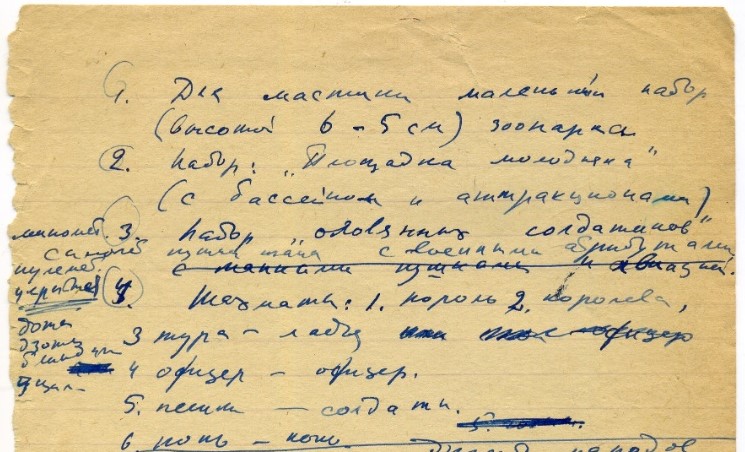 1. Для мастики маленький набор
(высотой 6-5 см) зоопарка
2. Набор: "Площадка молодняка"
(с бассейном и аттракционами)
3. Набор "оловянных солдатиков"
самолёт пушки с военными атрибутами
с танками пушками и авиацией.
4. Шахматы: 1. король 2. королева,
3 тура - ладья или офицер
4 офицер - офицер.
5. пешки - солдаты.
6. конь - конь
народов
миномёт
пулемёт
дота
дзоты